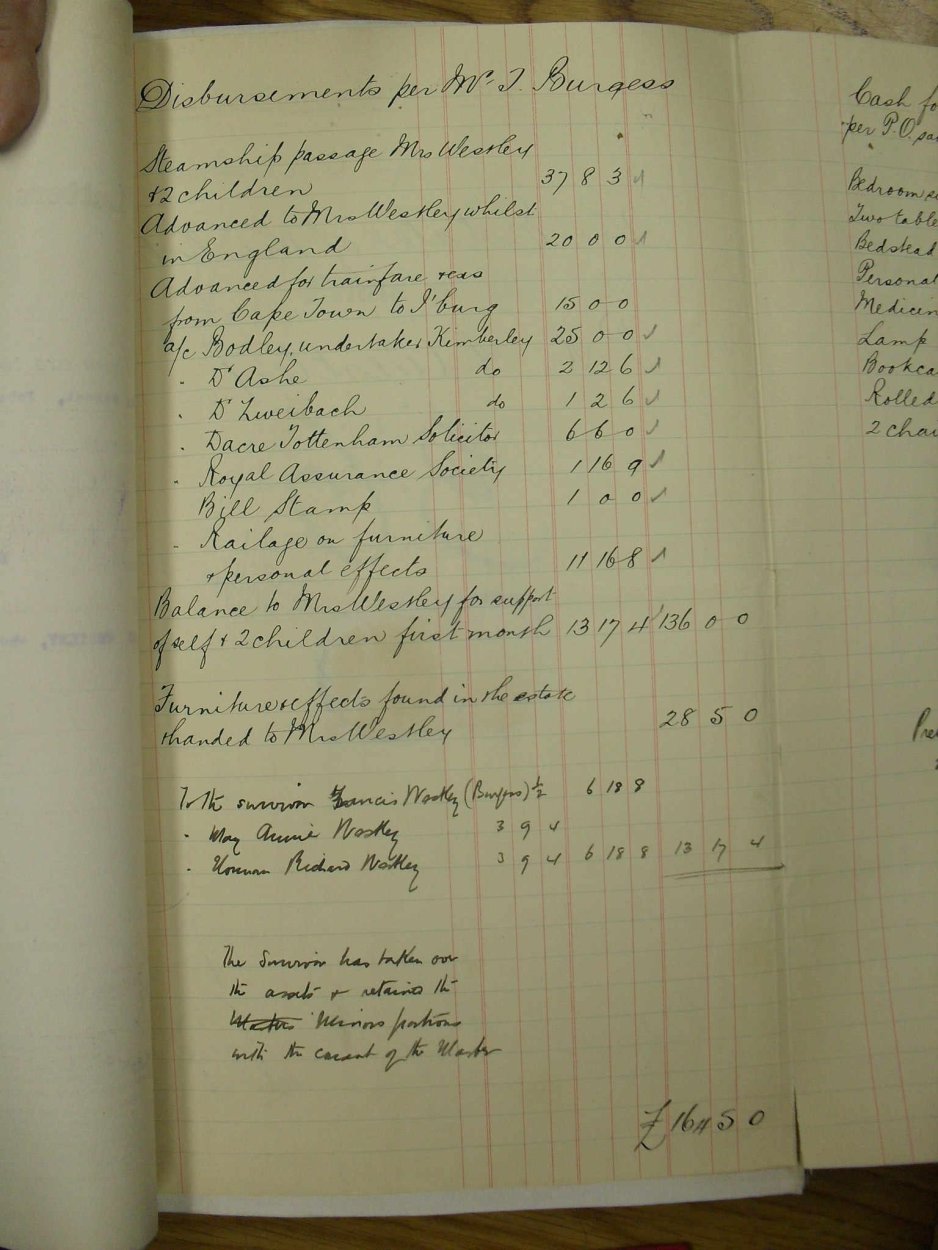 Disbursements per Mr T. Burgess
Steamship passage Mrs Westley
+ 2 children 37 8 3
Advanced to Mrs Westley whilst
in England 20 0 0
Advanced for trainfare +exs
from Cape Town to J'burg 15 0 0
a/c Bodley, undertaker Kimberley 25 0 0
" Dr Ashe do 2 12 6
" Dr Zweibach do 1 2 6
" Dacre Tottenham Solicitor 6 6 0
" Royal Assurance Society 1 16 9
Bill Stamp 1 0 0
" Railage on furniture
+ personal effects 11 16 8
Balance to Mrs Westley for support
of self + 2 children first month 13 17 4 136 0 0
Furniture + effects found in the estate
+ handed to Mrs Westley 28 5 0
To the survivor Francis Westley (Burgess) 1/2 6 18 8
" May Annie Westley 3 9 4
" Norman Richard Westley 3 9 4 6 18 8 13 17 4
The survivor has taken over
the assets + retains the
Masters Minors portions
with the consent of the Master
£ 164 5 0
Cash fo
per P.O. sa
Bedroom su
Two table
Bedstead
Personal
Medicin
Lamp
Bookca
Rolled
2 chai